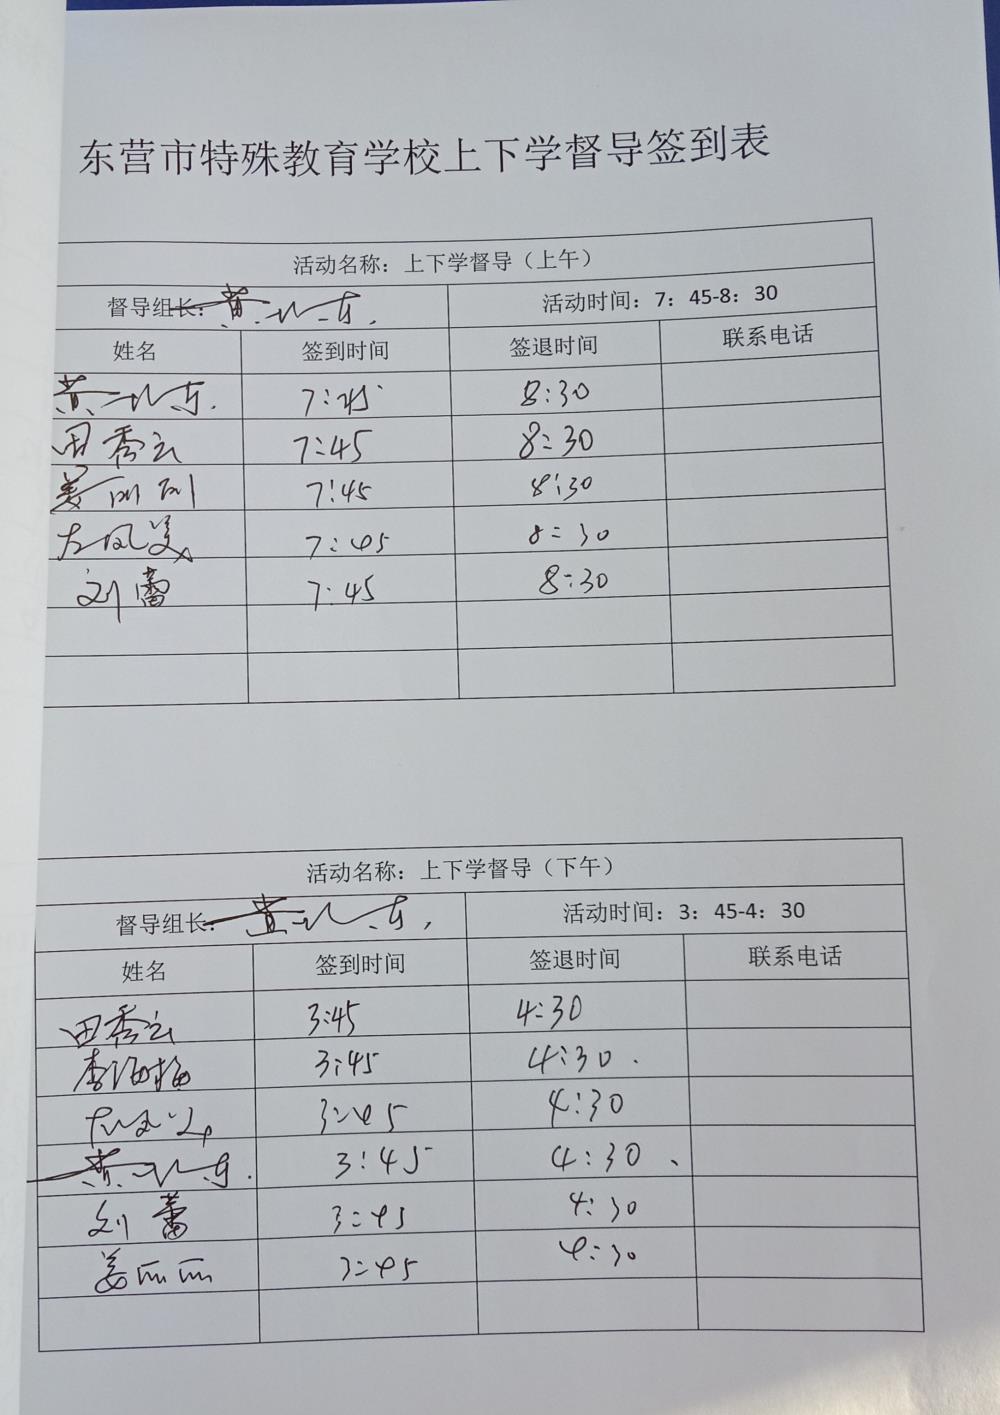 东营市特殊教育学校上下学督导签到表
活动名称：上下学督导（上午）
督导组长： 活动时间：7：45-8：30
姓名 签到时间 签退时间 联系电话
7:45 8:30
田秀云 7:45 8:30
姜丽丽 7:45 8:30
左凤美 7:45 8:30
刘蕾 7:45 8:30
活动名称：上下学督导（下午）
督导组长： 活动时间：3：45-4：30
姓名 签到时间 签退时间 联系电话
田秀云 3:45 4:30
李海梅 3:45 4:30.
左凤美 3:45 4:30
3:45 4:30、
刘蕾 3:45 4:30
姜丽丽 3:45 4:30